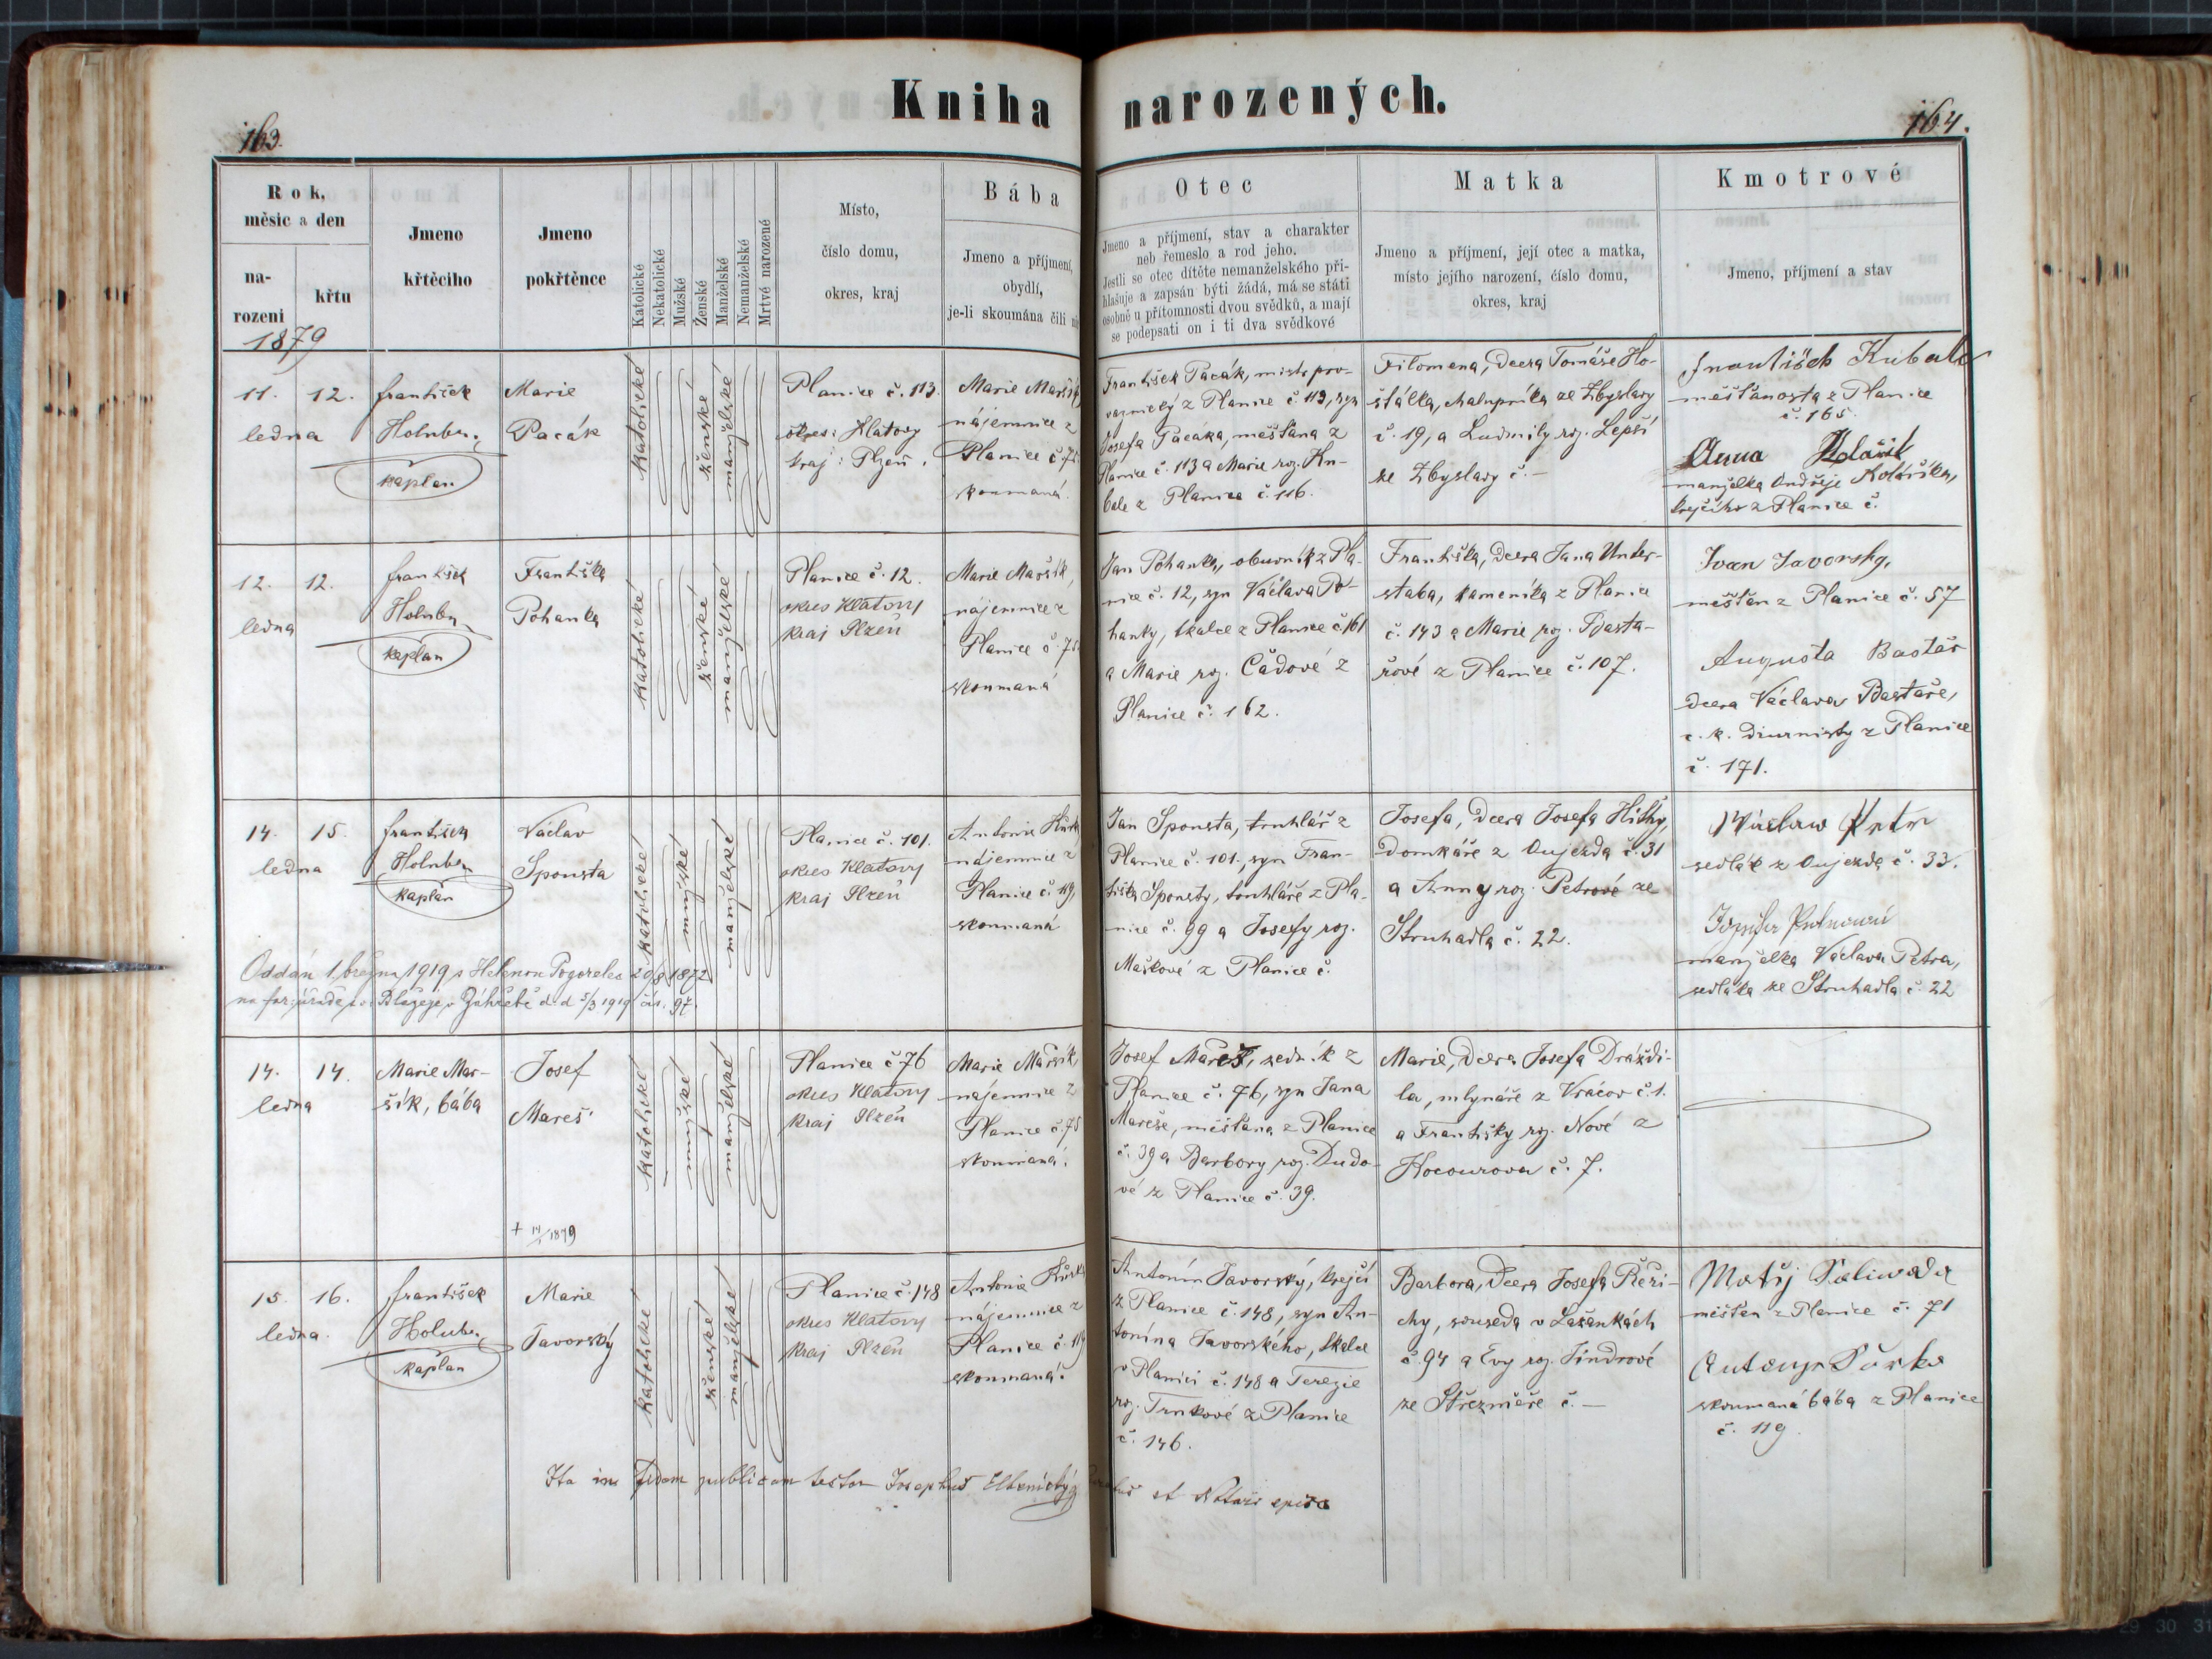 Kniha narozených.
163.
164.
Rok,
měsíc a den
na-
rozeni
křtu
Jmeno
křtěcího
Jmeno
pokřtěnce
Katolické
Nekatolické
Mužské
Ženské
Manželské
Nemanželské
Mrtvé narozené
Místo,
číslo domu,
okres, kraj
Bába
Jmeno a příjmení,
obydlí,
je-li skoumána čili
Otec
Jmeno a příjmení, stav a charakter
neb řemeslo a rod jeho.
Jestli se otec dítěte nemanželského při-
hlašuje a zapsán býti žádá, má se státi
osobně u přítomnosti dvou svědků, a mají
se podepsati on i ti dva svědkové
Matka
Jmeno a příjmení, její otec a matka,
místo jejího narození, číslo domu,
okres, kraj
Kmotrové
Jmeno, příjmení a stav
1879
11. 12.
ledna
František
Holub
kaplan
Marie
Pacák
katolické
ženské
manželské
Planice č. 113.
okres: Klatovy
kraj: Plzeň.
Marie Maršík
nájemnice z
Planice č. 75
skoumaná.
František Pacák, mistr pro-
vaznický z Planice č. 113, syn
Josefa Pacáka, měšťana z
Planice č. 113 a Marie roz. Ku-
bale z Planice č. 116.
Filomena, dcera Tomáše Ho-
šťálka, chalupníka ze Zbyslavy
č. 19, a Ludmily roz. Lepší
ze Zbyslavy č. —
František Kubale
měšťanosta z Planice
č. 165.
Anna Kolářík
manželka Ondřeje Koláříka,
krejčího z Planice č.
12. 12.
ledna
František
Holub
kaplan
Františka
Pohanka
katolické
ženské
manželské
Planice č. 12.
okres Klatovy
kraj Plzeň
Marie Maršík,
nájemnice z
Planice č. 75
skoumaná
Jan Pohanka, obuvník z Pla-
nice č. 12, syn Václava Po-
hanky, tkalce z Planice č. 161
a Marie roz. Čádové z
Planice č. 162.
Františka, dcera Jana Unter-
staba, kameníka z Planice
č. 143 a Marie roz. Basta-
řové z Planice č. 107.
Ivan Javorský,
měšťan z Planice č. 57
Augusta Bastář
dcera Václava Bastaře,
c. k. diurnisty z Planice
č. 171.
14. 15.
ledna
František
Holub
kaplan
Václav
Spousta
katolické
mužské
manželské
Planice č. 101.
okres Klatovy
kraj Plzeň
Antonie
nájemnice z
Planice č. 119,
skoumaná
Jan Spousta, truhlář z
Planice č. 101, syn Fran-
tiška Spousty, truhláře z Pla-
nice č. 99 a Josefy roz.
Maškové z Planice č.
Josefa, dcera Josefa
domkáře z Oujezda č. 31
a Anny roz. Petrové ze
Struhadla č. 22.
Václav Petr
sedlák z Oujezda č. 33.
manželka Václava Petra,
sedláka ze Struhadla č. 22
Oddán 1. března 1919 s Helenou Pogorelec 20/8 1872
na far. úřadě sv. Blažeje v Záhřebě d. d. 5/3 1919 čís. 97.
14. 14.
ledna
Marie Mar-
šík, bába
Josef
Mareš
+ 14/1 1879
katolické
mužské
manželské
Planice č. 76
okres Klatovy
kraj Plzeň
Marie Maršík,
nájemnice z
Planice č. 75
skoumaná.
Josef Mareš, zedník z
Planice č. 76, syn Jana
Mareše, měšťana z Planice
č. 39 a Barbory roz. Dudo-
vé z Planice č. 39.
Marie, dcera Josefa Dráždi-
la, mlynáře z Vracov č. 1.
a Františky roz. Nové z
Kocourova č. 7.
15. 16.
ledna.
František
Holub
kaplan
Marie
Javorský
katolické
ženské
manželské
Planice č. 148
okres Klatovy
kraj Plzeň
Antonie
nájemnice z
Planice č. 119
skoumaná.
Antonín Javorský, krejčí
z Planice č. 148, syn An-
tonína Javorského, tkalce
v Planici č. 148 a Terezie
roz. Trnkové z Planice
č. 146.
Barbora, dcera Josefa Řeři-
chy, souseda v Lažankách
č. 94 a Evy roz. Jindrové
ze Střezměře č. —
Matěj
měšťan z Planice č. 71
skoumaná bába z Planice
č. 119.
Ita in fidem publicam testor Josephus